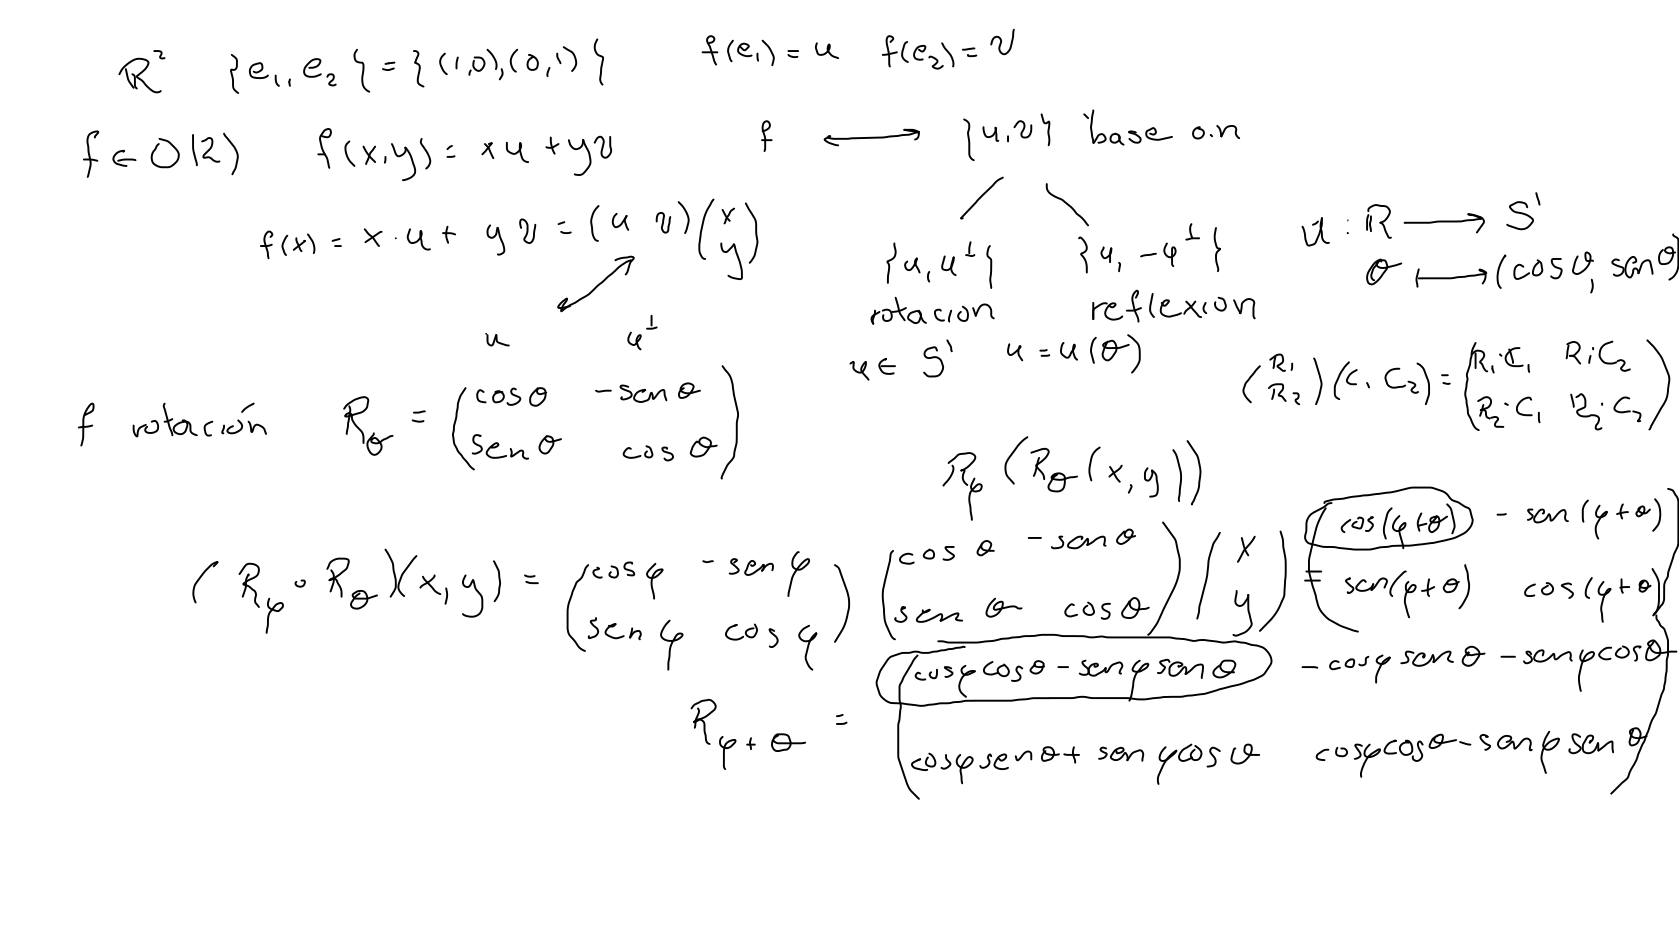 ℝ² {e₁, e₂} = {(1,0),(0,1)} f(e₁) = u f(e₂) = v
f ∈ O(2) f(x,y) = xu + yv f ⟷ {u,v} base o.n
f(x) = x·u + yv = (u v)(x y)
{u, u^⊥} {u, -u^⊥}
rotacion reflexion
u : ℝ ⟶ S¹
θ ⟼ (cosθ, senθ)
u ∈ S¹ u = u(θ)
u u^⊥
f rotación R_θ = (cosθ -senθ
senθ cosθ)
(R₁ R₂)(C₁ C₂) = (R₁·C₁ R₁·C₂
R₂·C₁ R₂·C₂)
R_φ(R_θ(x,y))
(R_φ ∘ R_θ)(x,y) = (cosφ -senφ
senφ cosφ)(cosθ -senθ
senθ cosθ)(x
y) = (cos(φ+θ) -sen(φ+θ)
sen(φ+θ) cos(φ+θ))
R_{φ+θ} = (cosφcosθ - senφsenθ -cosφsenθ - senφcosθ
cosφsenθ + senφcosθ cosφcosθ - senφsenθ)